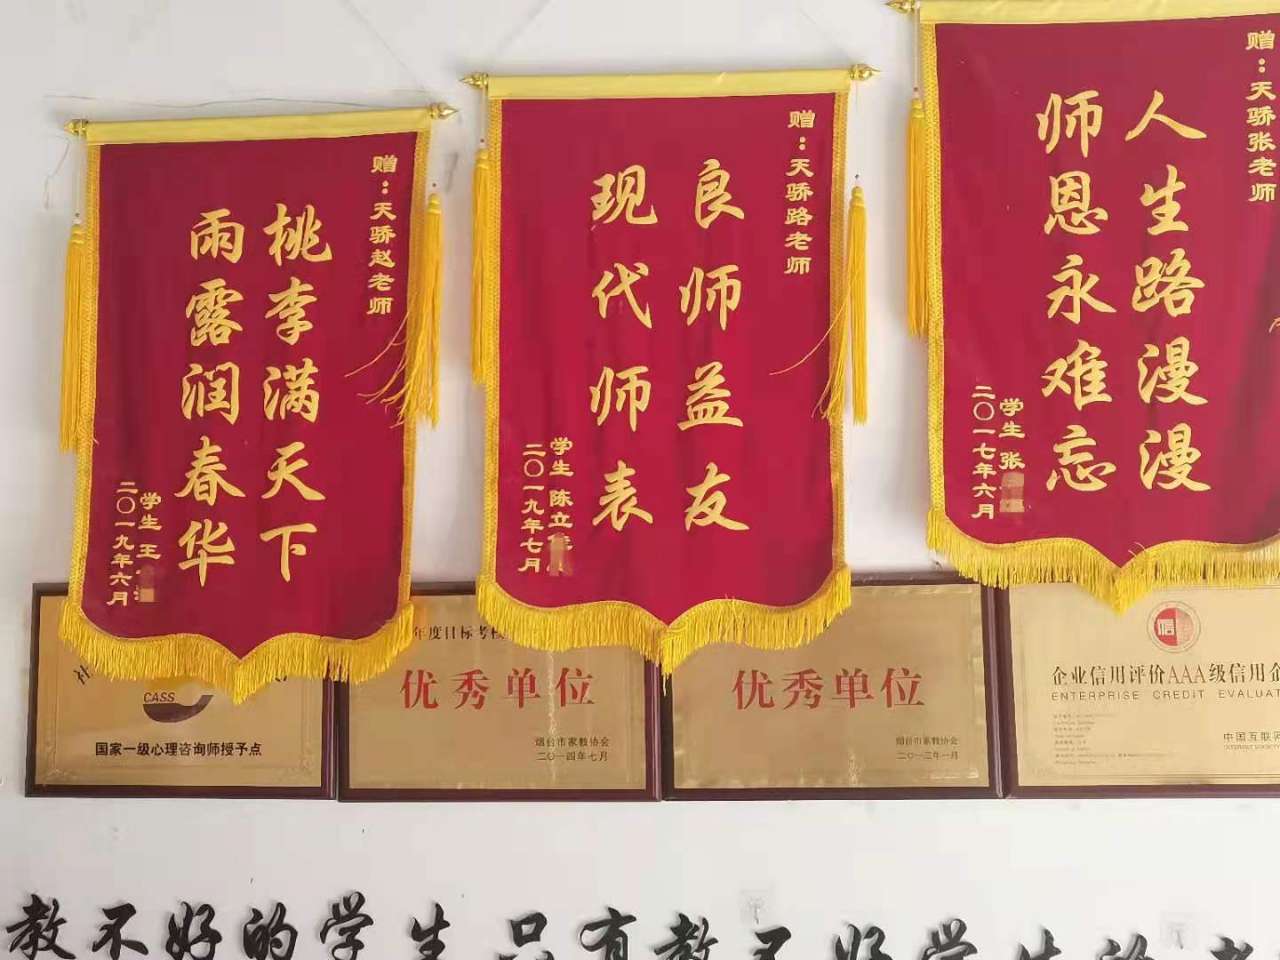 赠：天骄赵老师
桃李满天下
雨露润春华
学生 王
二〇一九年六月
赠：天骄路老师
良师益友
现代师表
学生 陈立
二〇一九年七月
赠：天骄张老师
人生路漫漫
师恩永难忘
学生 张
二〇一七年六月
CASS
国家一级心理咨询师授予点
年度目标考核
优秀单位
烟台市家教协会
二〇一四年七月
优秀单位
烟台市家教协会
信
企业信用评价AAA级信用企
ENTERPRISE CREDIT EVALUAT
中国互联
教不好的学生 只有教不好学生的老